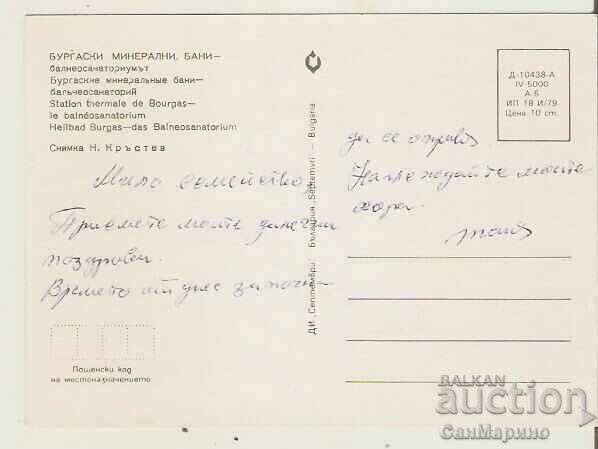 БУРГАСКИ МИНЕРАЛНИ БАНИ—
балнеосанаториумът
Бургаские минеральные бани—
бальнеосанаторий
Station thermale de Bourgas—
le balnéosanatorium
Heilbad Burgas—das Balneosanatorium
Снимка Н. Кръстев
Мило семейство,
Приемете моите далечни
поздрави.
Времето от днес започна
Пощенски код
на местоназначението
ДИ „Септември" България „Septemvri" — Bulgaria
Д-10438-А
IV-5000
А-6
ИП 18 И/79
Цена 10 ст.
да се оправя
Наглеждайте моите
хора.
BALKAN
auction
СанМарино